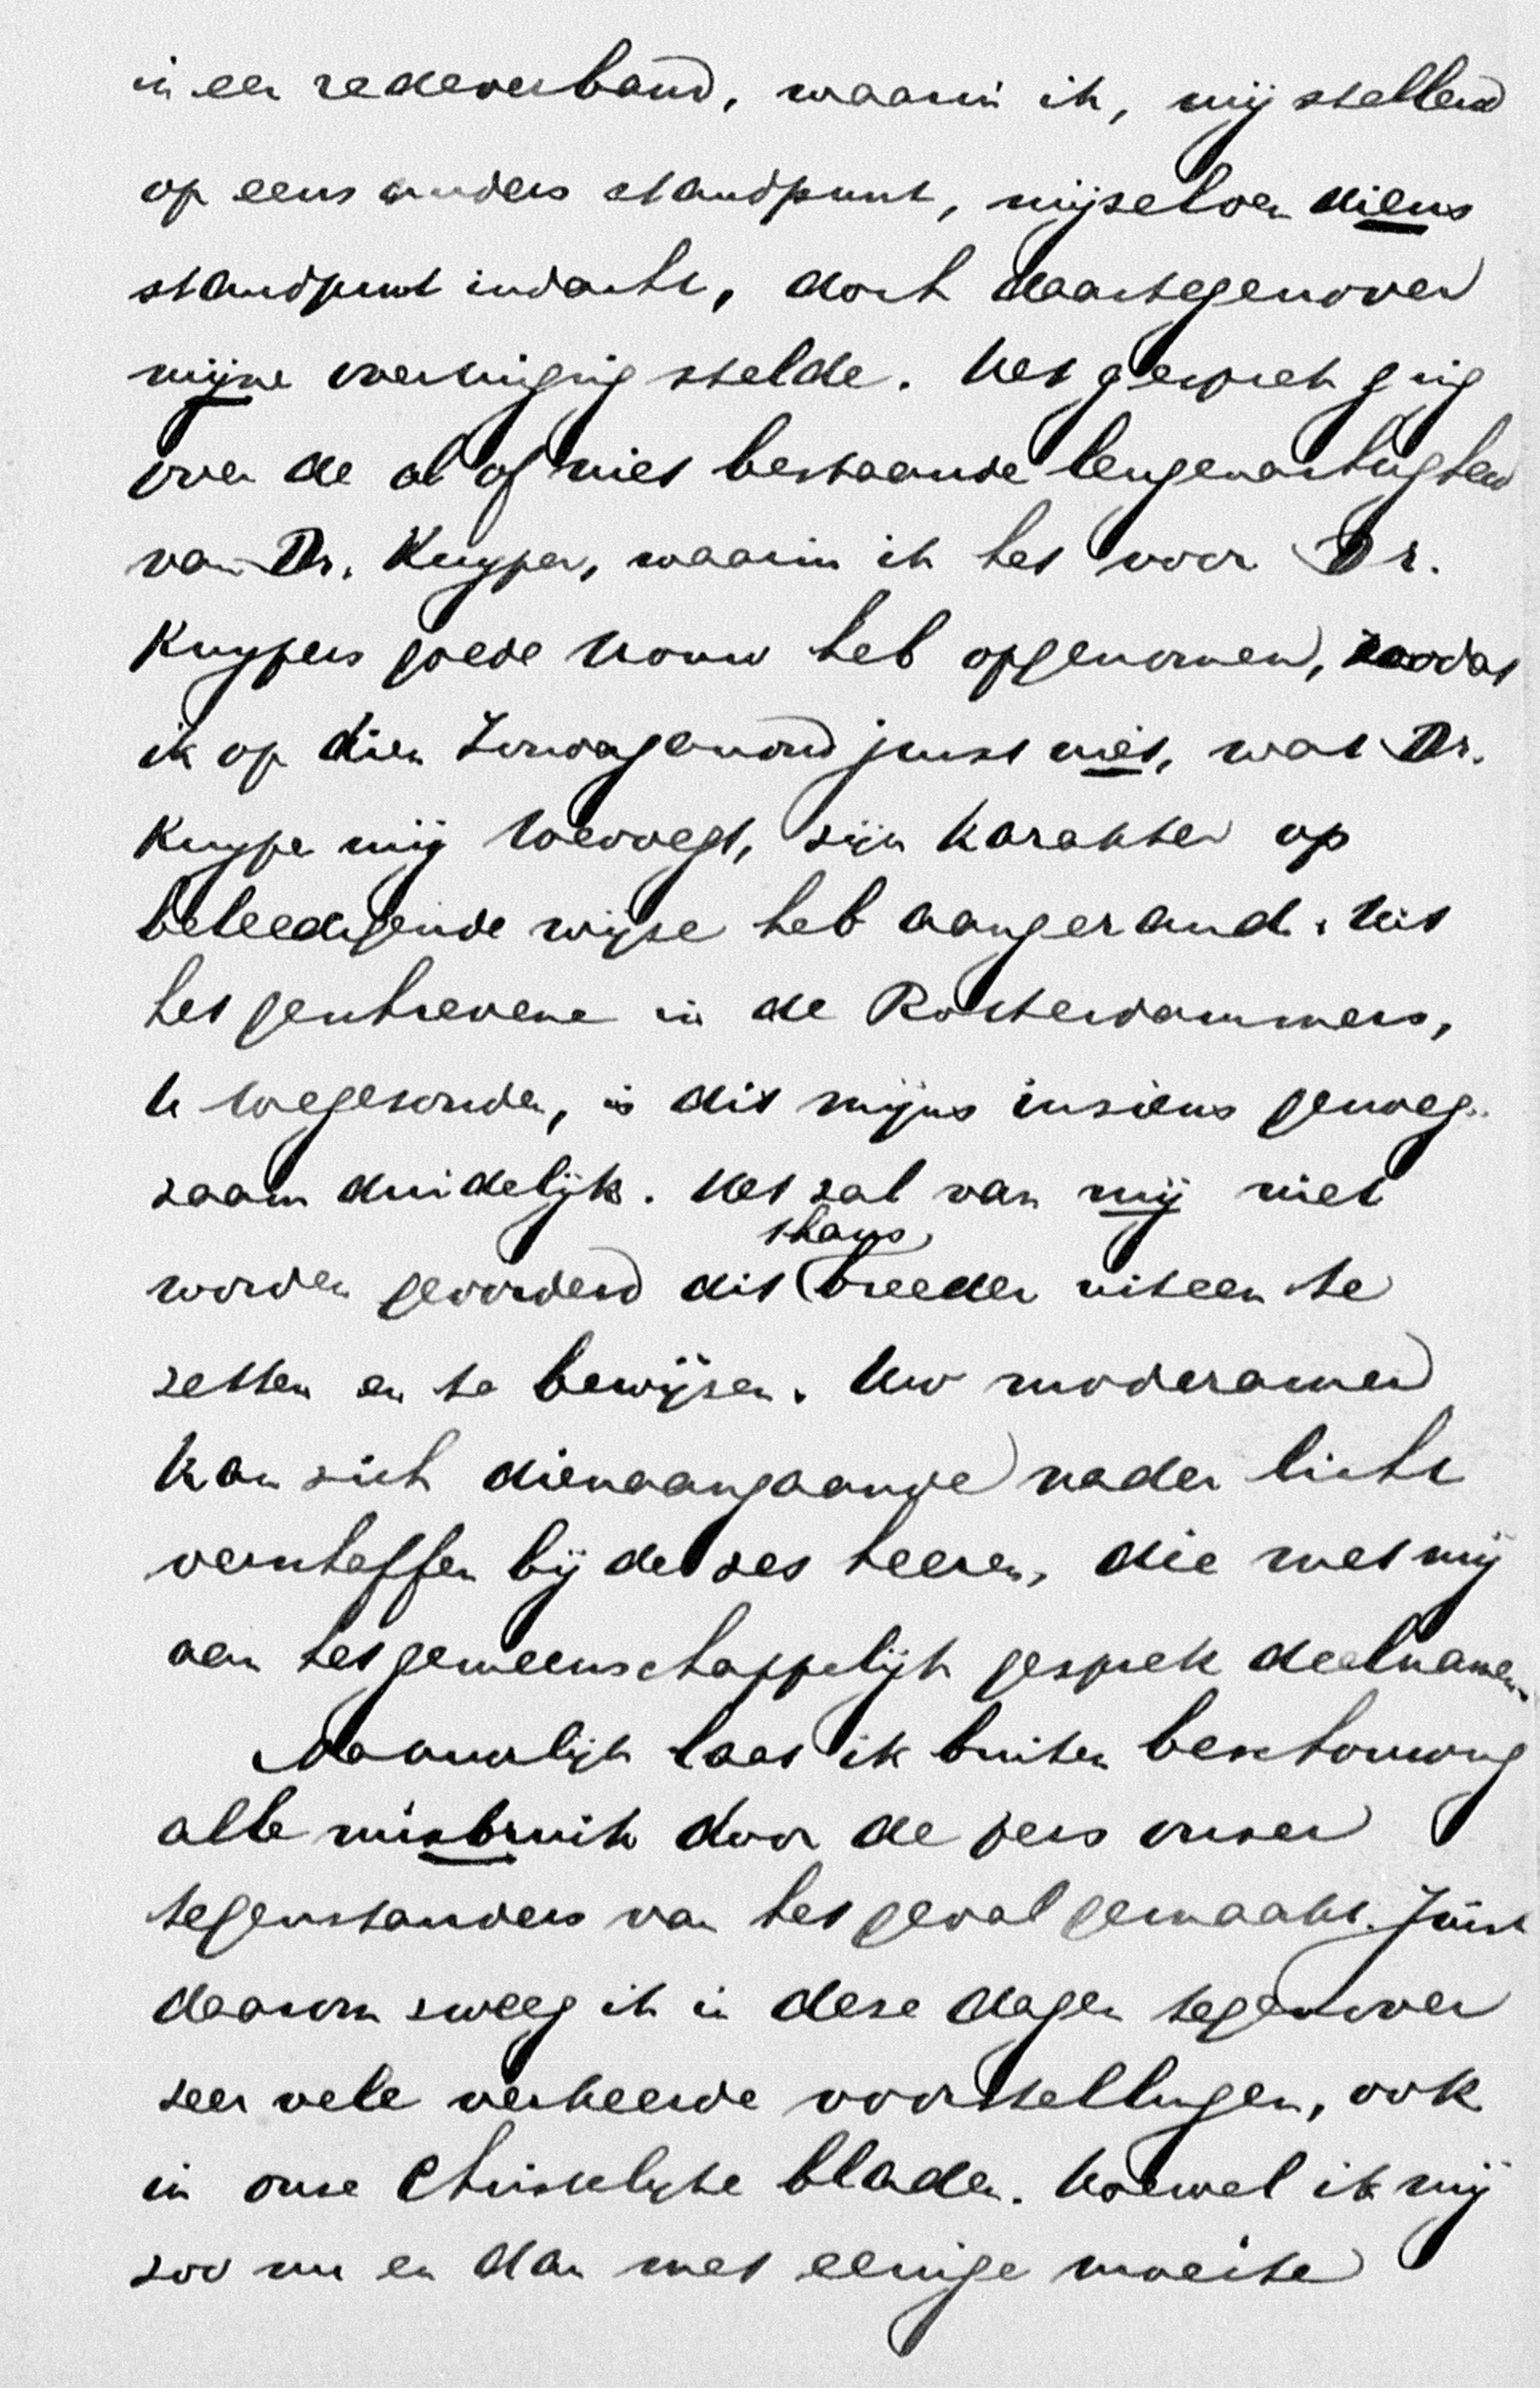 in een redeverband, waarin ik, mij stellend
op eens anders standpunt, mijzelven diens
standpunt indacht, doch daartegenover
mijne overtuiging stelde. Het gesprek ging
over de al of niet bestaande leugenachtigheid
van Dr. Kuyper, waarin ik het voor Dr.
Kuypers goede trouw heb opgenomen, zoodat
ik op dien Zondagavond juist niet, wat Dr.
Kuyper mij toevoegt, zijn karakter op
beleedigende wijze heb aangerand. Uit
het geschrevene in de Rotterdammers,
U toegezonden, is dit mijns inziens genoeg-
zaam duidelijk. Het zal van mij niet
worden gevorderd dit thans breeder uiteen te
zetten en te bewijzen. Uw moderamen
kan zich dienaangaande nader licht
verschaffen bij de zes heeren, die met mij
aan het gemeenschappelijk gesprek deelnamen.
Natuurlijk laat ik buiten beschouwing
alle misbruik door de pers onzer
tegenstanders van het geval gemaakt. Juist
daarom zweeg ik in deze dagen tegenover
zeer vele verkeerde voorstellingen, ook
in onze Christelijke bladen. Hoewel ik mij
zoo nu en dan met eenige moeite